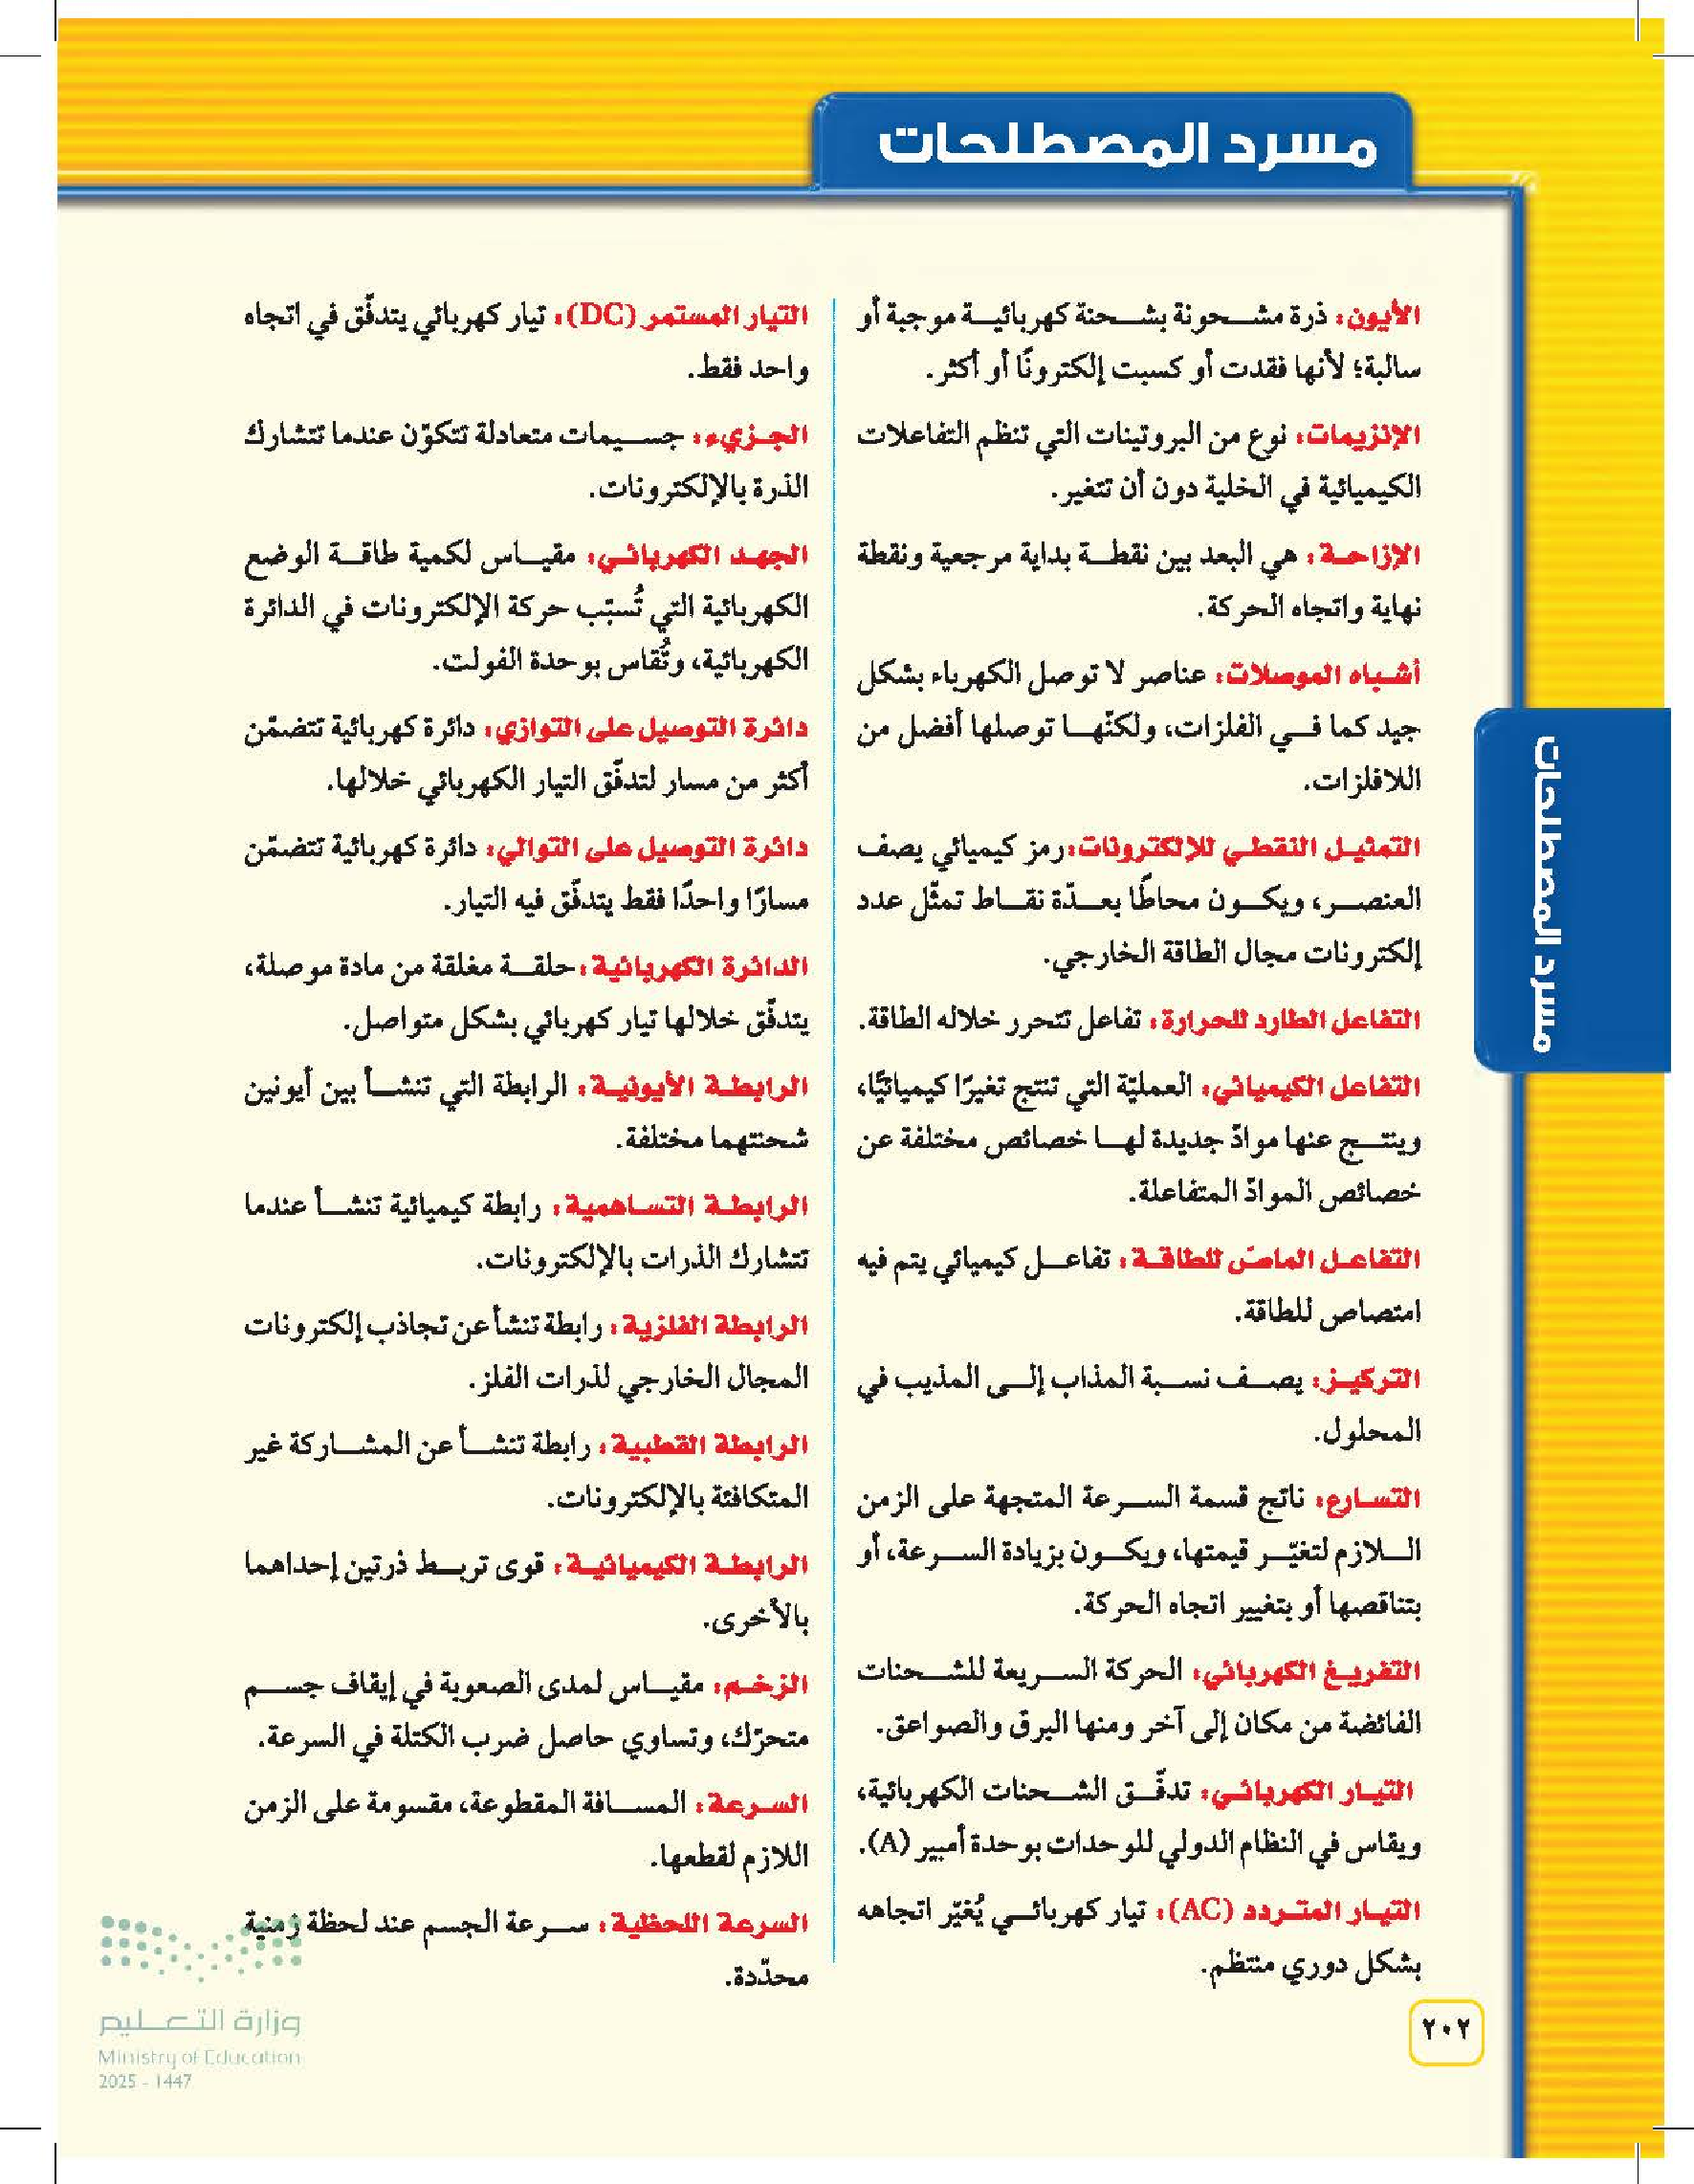 مسرد المصطلحات
الأيون: ذرة مشحونة بشحنة كهربائية موجبة أو
سالبة؛ لأنها فقدت أو كسبت إلكترونًا أو أكثر.
الإنزيمات: نوع من البروتينات التي تنظم التفاعلات
الكيميائية في الخلية دون أن تتغير.
الإزاحة: هي البعد بين نقطة بداية مرجعية ونقطة
نهاية واتجاه الحركة.
أشباه الموصلات: عناصر لا توصل الكهرباء بشكل
جيد كما في الفلزات، ولكنّها توصلها أفضل من
اللافلزات.
التمثيل النقطي للإلكترونات: رمز كيميائي يصف
العنصر، ويكون محاطًا بعدّة نقاط تمثّل عدد
إلكترونات مجال الطاقة الخارجي.
التفاعل الطارد للحرارة: تفاعل تتحرر خلاله الطاقة.
التفاعل الكيميائي: العمليّة التي تنتج تغيرًا كيميائيًّا،
وينتج عنها موادّ جديدة لها خصائص مختلفة عن
خصائص الموادّ المتفاعلة.
التفاعل الماصّ للطاقة: تفاعل كيميائي يتم فيه
امتصاص للطاقة.
التركيز: يصف نسبة المذاب إلى المذيب في
المحلول.
التسارع: ناتج قسمة السرعة المتجهة على الزمن
اللازم لتغيّر قيمتها، ويكون بزيادة السرعة، أو
بتناقصها أو بتغيير اتجاه الحركة.
التفريغ الكهربائي: الحركة السريعة للشحنات
الفائضة من مكان إلى آخر ومنها البرق والصواعق.
التيار الكهربائي: تدفّق الشحنات الكهربائية،
ويقاس في النظام الدولي للوحدات بوحدة أمبير (A).
التيار المتردد (AC): تيار كهربائي يُغيّر اتجاهه
بشكل دوري منتظم.
التيار المستمر (DC): تيار كهربائي يتدفّق في اتجاه
واحد فقط.
الجزيء: جسيمات متعادلة تتكوّن عندما تتشارك
الذرة بالإلكترونات.
الجهد الكهربائي: مقياس لكمية طاقة الوضع
الكهربائية التي تُسبّب حركة الإلكترونات في الدائرة
الكهربائية، وتُقاس بوحدة الفولت.
دائرة التوصيل على التوازي: دائرة كهربائية تتضمّن
أكثر من مسار لتدفّق التيار الكهربائي خلالها.
دائرة التوصيل على التوالي: دائرة كهربائية تتضمّن
مسارًا واحدًا فقط يتدفّق فيه التيار.
الدائرة الكهربائية: حلقة مغلقة من مادة موصلة،
يتدفّق خلالها تيار كهربائي بشكل متواصل.
الرابطة الأيونية: الرابطة التي تنشأ بين أيونين
شحنتهما مختلفة.
الرابطة التساهمية: رابطة كيميائية تنشأ عندما
تتشارك الذرات بالإلكترونات.
الرابطة الفلزية: رابطة تنشأ عن تجاذب إلكترونات
المجال الخارجي لذرات الفلز.
الرابطة القطبية: رابطة تنشأ عن المشاركة غير
المتكافئة بالإلكترونات.
الرابطة الكيميائية: قوى تربط ذرتين إحداهما
بالأخرى.
الزخم: مقياس لمدى الصعوبة في إيقاف جسم
متحرّك، وتساوي حاصل ضرب الكتلة في السرعة.
السرعة: المسافة المقطوعة، مقسومة على الزمن
اللازم لقطعها.
السرعة اللحظية: سرعة الجسم عند لحظة زمنية
محدّدة.
مسرد المصطلحات
٢٠٢
وزارة التعليم
Ministry of Education
2025 - 1447